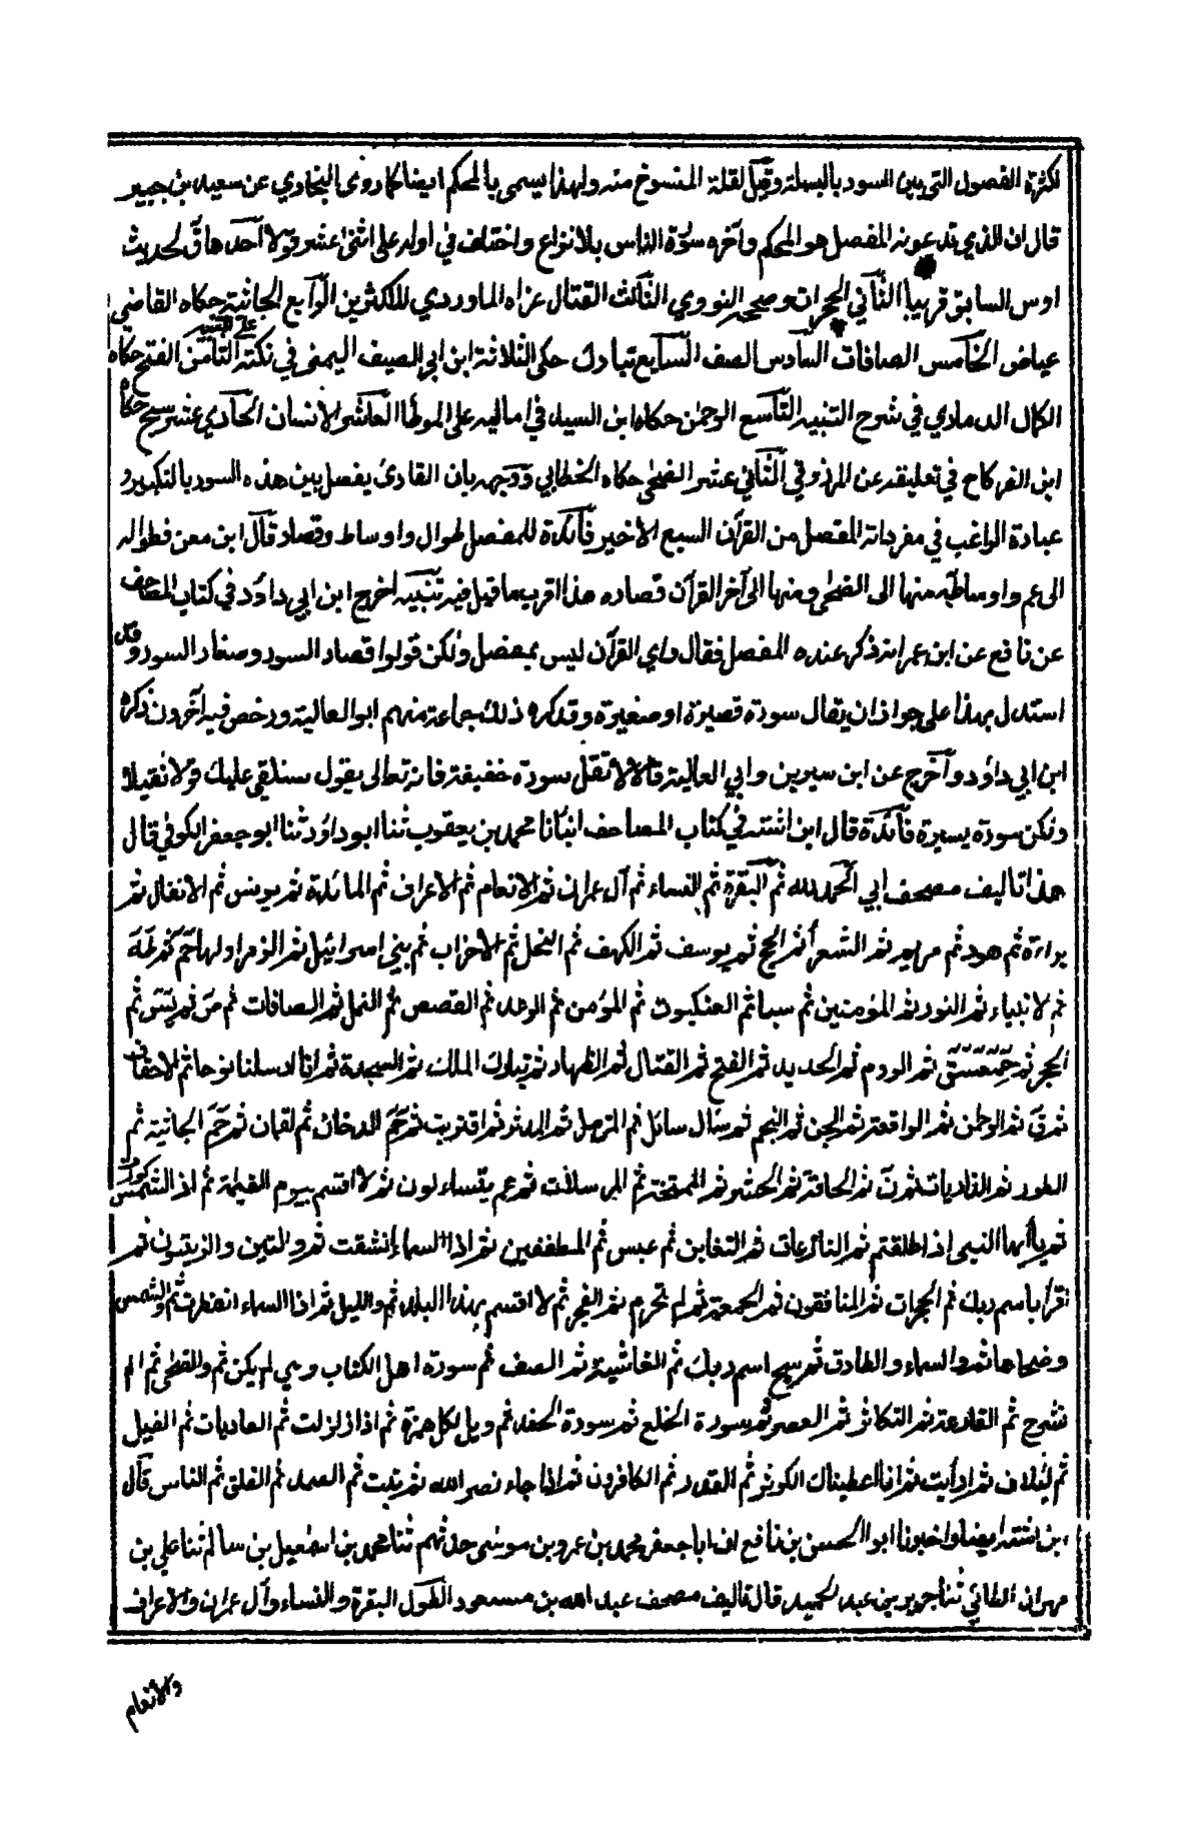 لكثرة الفصول التي بين السور بالبسملة وقيل لقلة المنسوخ منه ولهذا يسمى بالمحكم ايضا كما روى البخاري عن سعيد بن جبير
قال ان الذي تدعونه المفصل هو المحكم وآخره سورة الناس بلا نزاع واختلف في اوله على اثنى عشر قولا احدها ق لحديث
اوس السابق قريبا الثاني الحجرات وصححه النووي الثالث القتال عزاه الماوردي للاكثرين الرابع الجاثية حكاه القاضي
عياض الخامس الصافات السادس الصف السابع تبارك حكى الثلاثة ابن ابي الصيف اليمنى في نكته على التنبيه الثامن الفتح حكاه
الكمال الدماري في شرح التنبيه التاسع الرحمن حكاه ابن السيد في اماليه على الموطأ العاشر الانسان الحادي عشر سبح حكاه
ابن الفركاح في تعليقه عن المرزوقي الثاني عشر الضحى حكاه الخطابي ووجهه بان القارئ يفصل بين هذه السور بالتكبير و
عبارة الراغب في مفرداته المفصل من القرآن السبع الاخير فائدة للمفصل طوال واوساط وقصار قال ابن معن فطواله
الى عم واوساطه منها الى الضحى ومنها الى آخر القرآن قصاره هذا اقرب ما قيل فيه تنبيه اخرج ابن ابي داؤد في كتاب المصاحف
عن نافع عن ابن عمر انه ذكر عنده المفصل فقال واي القرآن ليس بمفصل ولكن قولوا قصار السور وصغار السور وقد
استدل بهذا على جواز ان يقال سورة قصيرة او صغيرة وقد كره ذلك جماعة منهم ابو العالية ورخص فيه آخرون ذكره
ابن ابي داؤد وآخرج عن ابن سيرين وابي العالية قالا لا تقل سورة خفيفة فانه تعالى يقول سنلقي عليك قولا ثقيلا
ولكن سورة يسيرة فائدة قال ابن اشته في كتاب المصاحف انبانا محمد بن يعقوب ثنا ابو داؤد ثنا ابو جعفر الكوفي قال
هذا تاليف مصحف ابي الحمد لله ثم البقرة ثم النساء ثم آل عمران ثم الانعام ثم الاعراف ثم المائدة ثم يونس ثم الانفال ثم
براءة ثم هود ثم مريم ثم الشعرا ثم الحج ثم يوسف ثم الكهف ثم النحل ثم الاحزاب ثم بني اسرائيل ثم الزمر اولها حم ثم طه
ثم لانبياء ثم النور ثم المؤمنين ثم سبا ثم العنكبوت ثم المؤمن ثم الرعد ثم القصص ثم النمل ثم الصافات ثم ص ثم يس ثم
الحجر ثم حمعسق ثم الروم ثم الحديد ثم الفتح ثم القتال ثم الظهار ثم تبارك الملك ثم السجدة ثم انا ارسلنا نوحا ثم الاحقاف
ثم ق ثم الرحمن ثم الواقعة ثم الجن ثم النجم ثم سال سائل ثم المزمل ثم المدثر ثم اقتربت ثم حم الدخان ثم لقمان ثم حم الجاثية ثم
الطور ثم الذاريات ثم ن ثم الحاقة ثم الحشر ثم الممتحنة ثم المرسلات ثم عم يتساءلون ثم لا اقسم بيوم القيامة ثم اذا الشمس كورت
ثم يا ايها النبي اذا طلقتم ثم النازعات ثم التغابن ثم عبس ثم المطففين ثم اذا السماء انشقت ثم والتين والزيتون ثم
اقرأ باسم ربك ثم الحجرات ثم المنافقون ثم الجمعة ثم لم تحرم ثم الفجر ثم لا اقسم بهذا البلد ثم والليل ثم اذا السماء انفطرت ثم والشمس
وضحاها ثم والسماء والطارق ثم سبح اسم ربك ثم الغاشية ثم الصف ثم سورة اهل الكتاب وهي لم يكن ثم والضحى ثم الم
نشرح ثم القارعة ثم التكاثر ثم العصر ثم سورة الخلع ثم سورة الحفد ثم ويل لكل همزة ثم اذا زلزلت ثم العاديات ثم الفيل
ثم لئلاف ثم ارأيت ثم انا اعطيناك الكوثر ثم القدر ثم الكافرون ثم اذا جاء نصر الله ثم تبت ثم الصمد ثم الفلق ثم الناس قال
ابن اشته ايضا واخبرنا ابو الحسن بن نافع ان ابا جعفر محمد بن عمرو بن موسى حدثهم ثنا محمد بن اسمعيل بن سالم ثنا علي بن
مهران الطائي ثنا جرير بن عبد الحميد قال تاليف مصحف عبد الله بن مسعود الطول البقرة والنساء وآل عمران والاعراف
والانعام